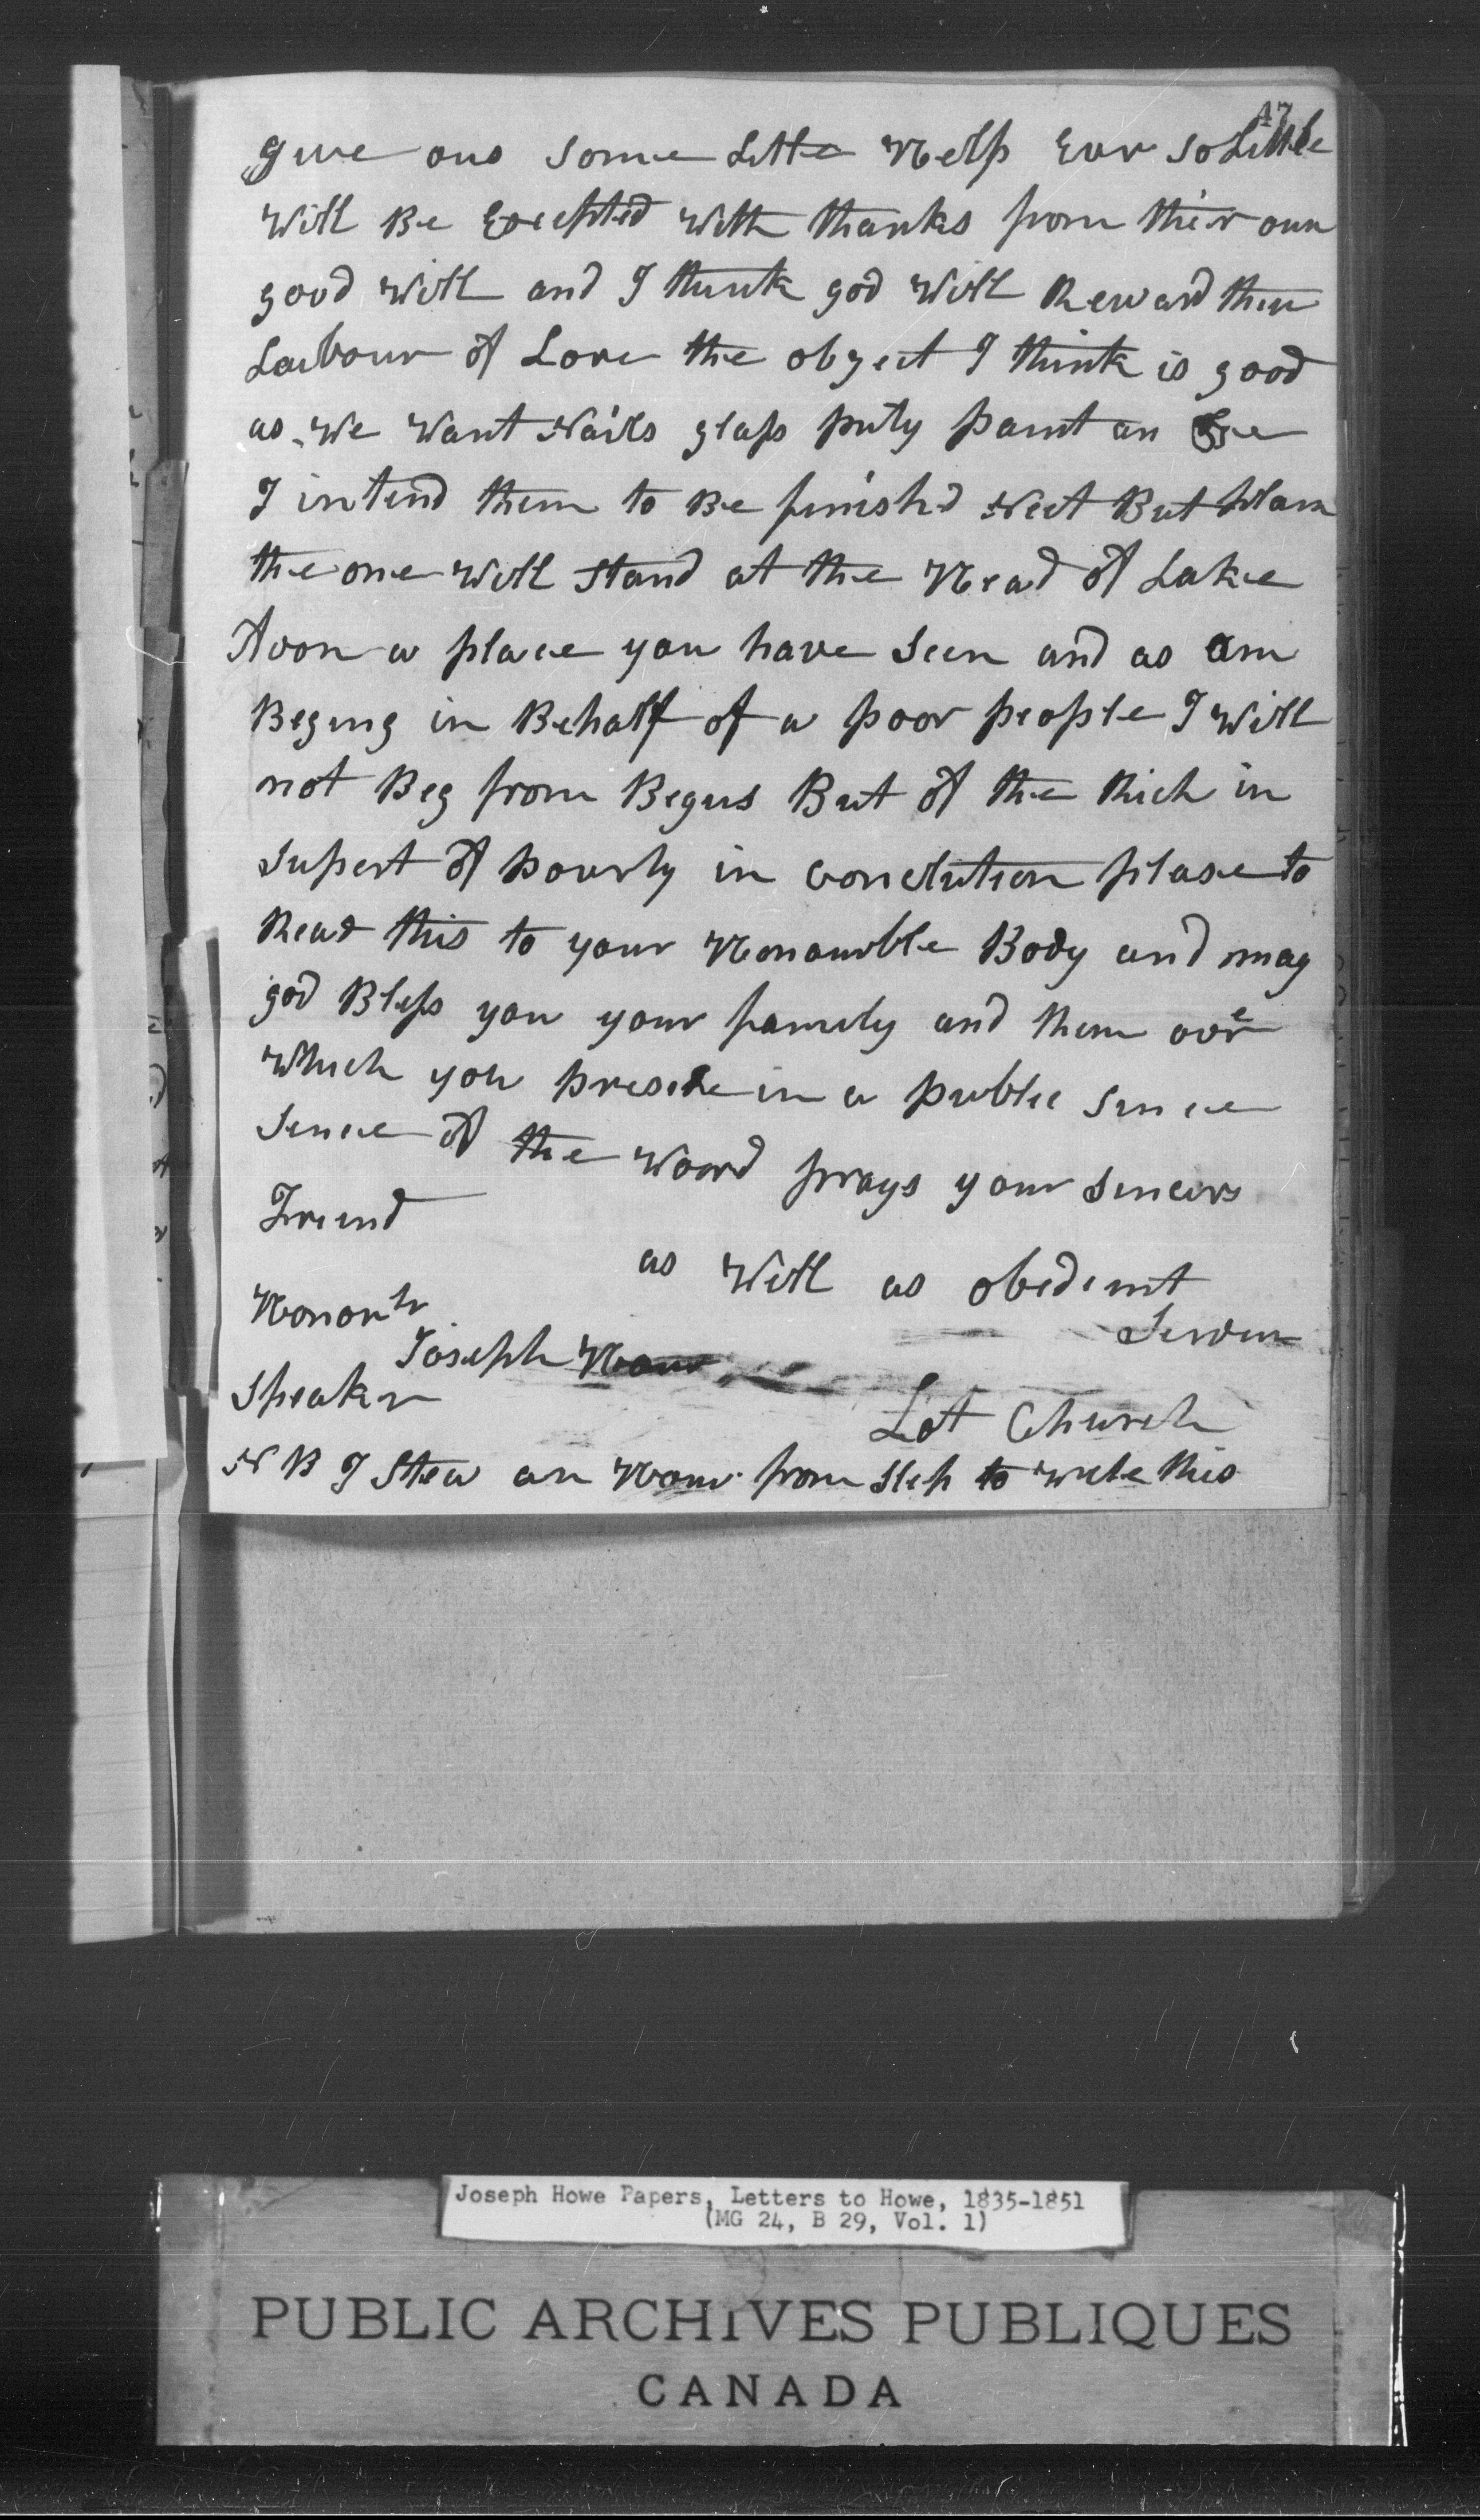 47
give ous some Little Help Ever so Little
Will Be Excepted With thanks from their own
good Will and I think god Will Reward their
Labour of Love the obgect I think is good
as We Want Nails glass puty paint an
I intend them to Be finish'd Neet But plain
the one Will stand at the Head of Lake
Avon a place you have seen and as am
Beging in Behalf of a poor people I Will
not Beg from Begurs But of the Rich in
supert of pourty in conclution please to
Read this to your Honourble Body and may
god Bless you your family and them over
Which you preside in a public sence
sence of the Woord prays your sincers
Friend
as Will as obedient
Servin
Honorle
Joseph How
Speaker
Lot Church
N B I Stea an Hour from slep to write this
Joseph Howe Papers, Letters to Howe, 1835-1851
(MG 24, B 29, Vol. 1)
PUBLIC ARCHIVES PUBLIQUES
CANADA